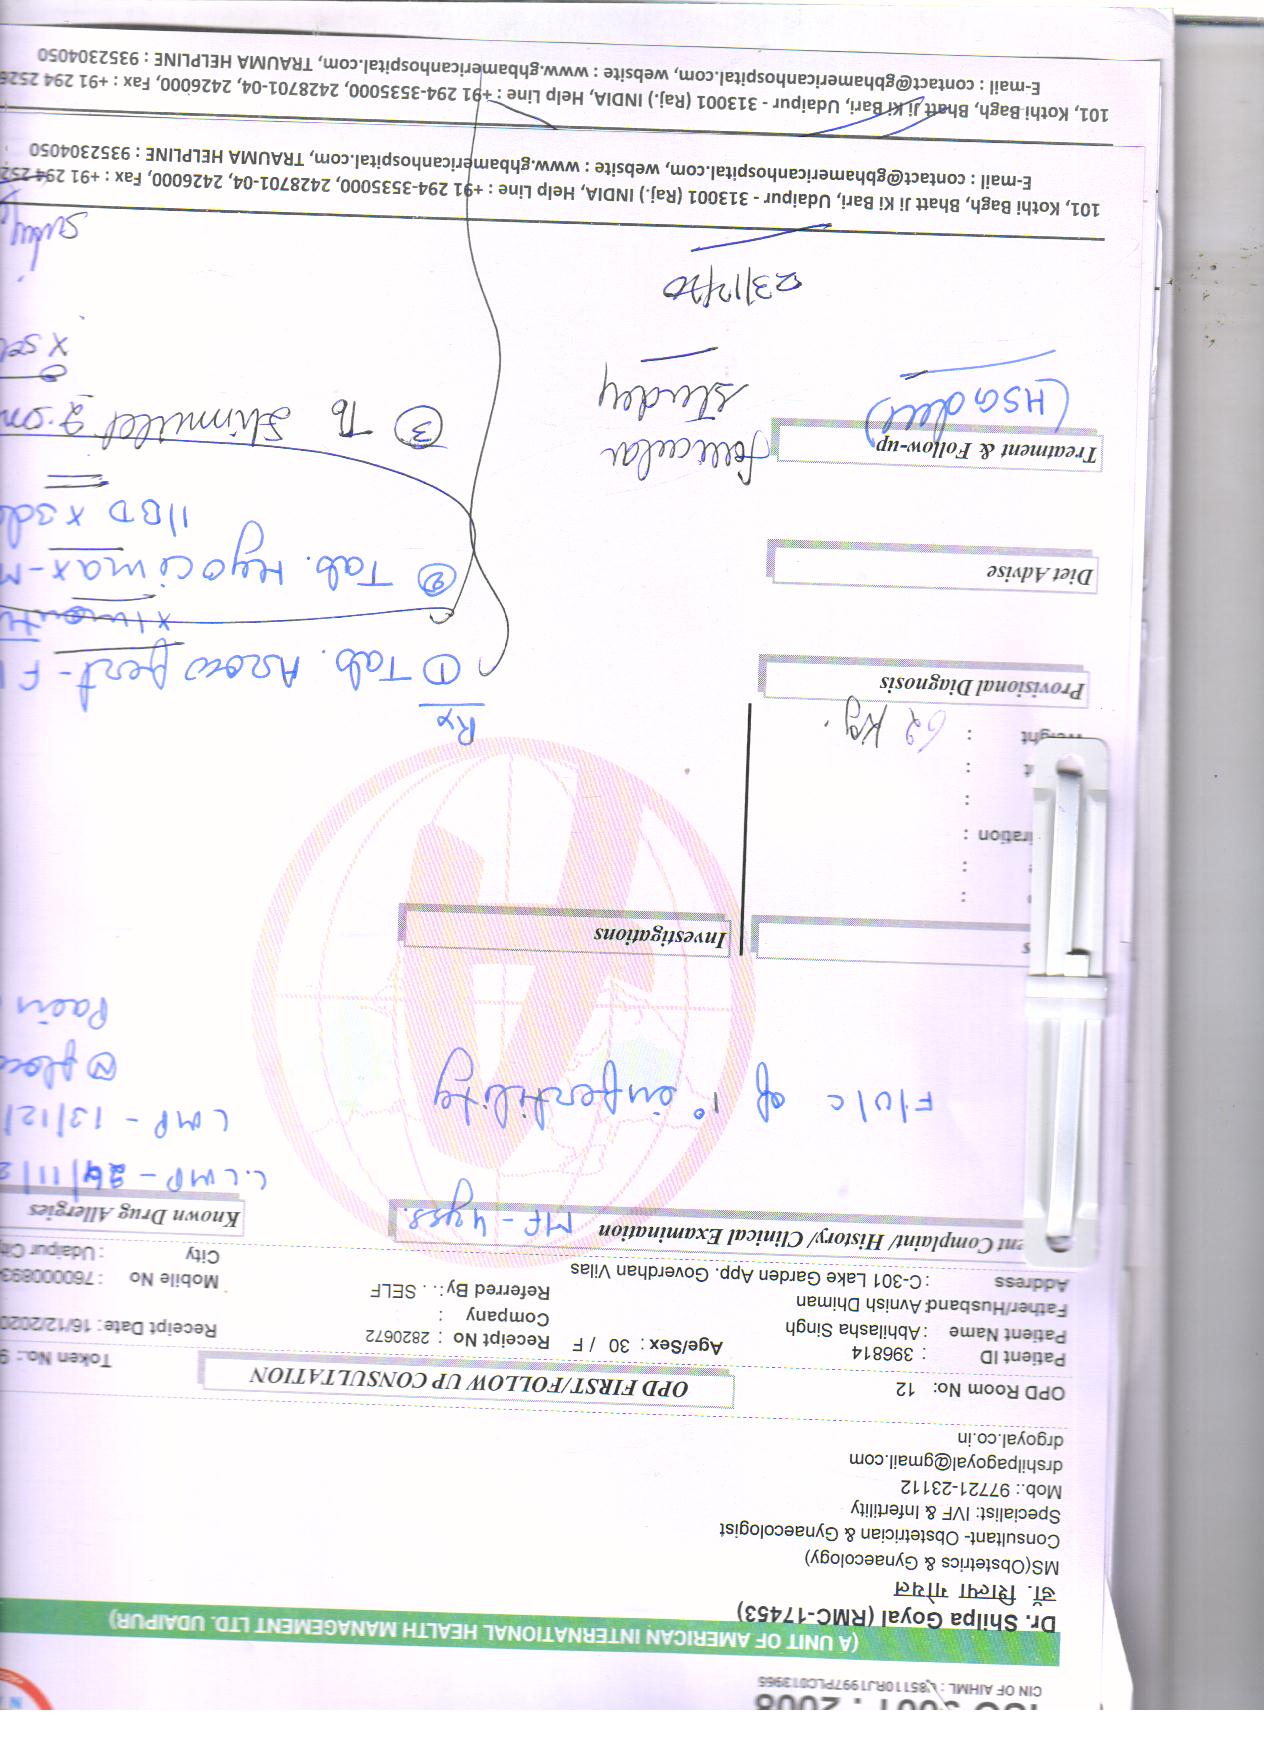 ISO 9001 : 2008
CIN OF AIHML : U85110RJ1997PLC013965
(A UNIT OF AMERICAN INTERNATIONAL HEALTH MANAGEMENT LTD. UDAIPUR)
Dr. Shilpa Goyal (RMC-17453)
डॉ. शिल्पा गोयल
MS(Obstetrics & Gynaecology)
Consultant- Obstetrician & Gynaecologist
Specialist: IVF & Infertility
Mob.: 97721-23112
drshilpagoyal@gmail.com
drgoyal.co.in
OPD Room No: 12
OPD FIRST/FOLLOW UP CONSULTATION
Token No.: 9
Patient ID : 396814
Age/Sex : 30 / F
Receipt No : 2820672
Receipt Date: 16/12/2020
Patient Name : Abhilasha Singh
Company :
Father/Husband: Avnish Dhiman
Referred By: . . SELF
Mobile No : 760000893
Address : C-301 Lake Garden App. Goverdhan Vilas
City : Udaipur City
ent Complaint/ History/ Clinical Examination MF - 4 yrs.
Known Drug Allergies
L.LMP - 24/11/2
F/U/C of 1° infertility
LMP - 13/12/
Pain
Investigations
Weight : 62 kg.
Rx
Provisional Diagnosis
① Tab.
② Tab. Hyocimax-M
1/BD x 3d
Diet Advise
③ Tb
Treatment & Follow-up
(HSG
follicular
study
23/12/20
101, Kothi Bagh, Bhatt Ji Ki Bari, Udaipur - 313001 (Raj.) INDIA, Help Line : +91 294-3535000, 2428701-04, 2426000, Fax : +91 294 252
E-mail : contact@gbhamericanhospital.com, website : www.gbhamericanhospital.com, TRAUMA HELPLINE : 9352304050
101, Kothi Bagh, Bhatt Ji Ki Bari, Udaipur - 313001 (Raj.) INDIA, Help Line : +91 294-3535000, 2428701-04, 2426000, Fax : +91 294 2526
E-mail : contact@gbhamericanhospital.com, website : www.gbhamericanhospital.com, TRAUMA HELPLINE : 9352304050